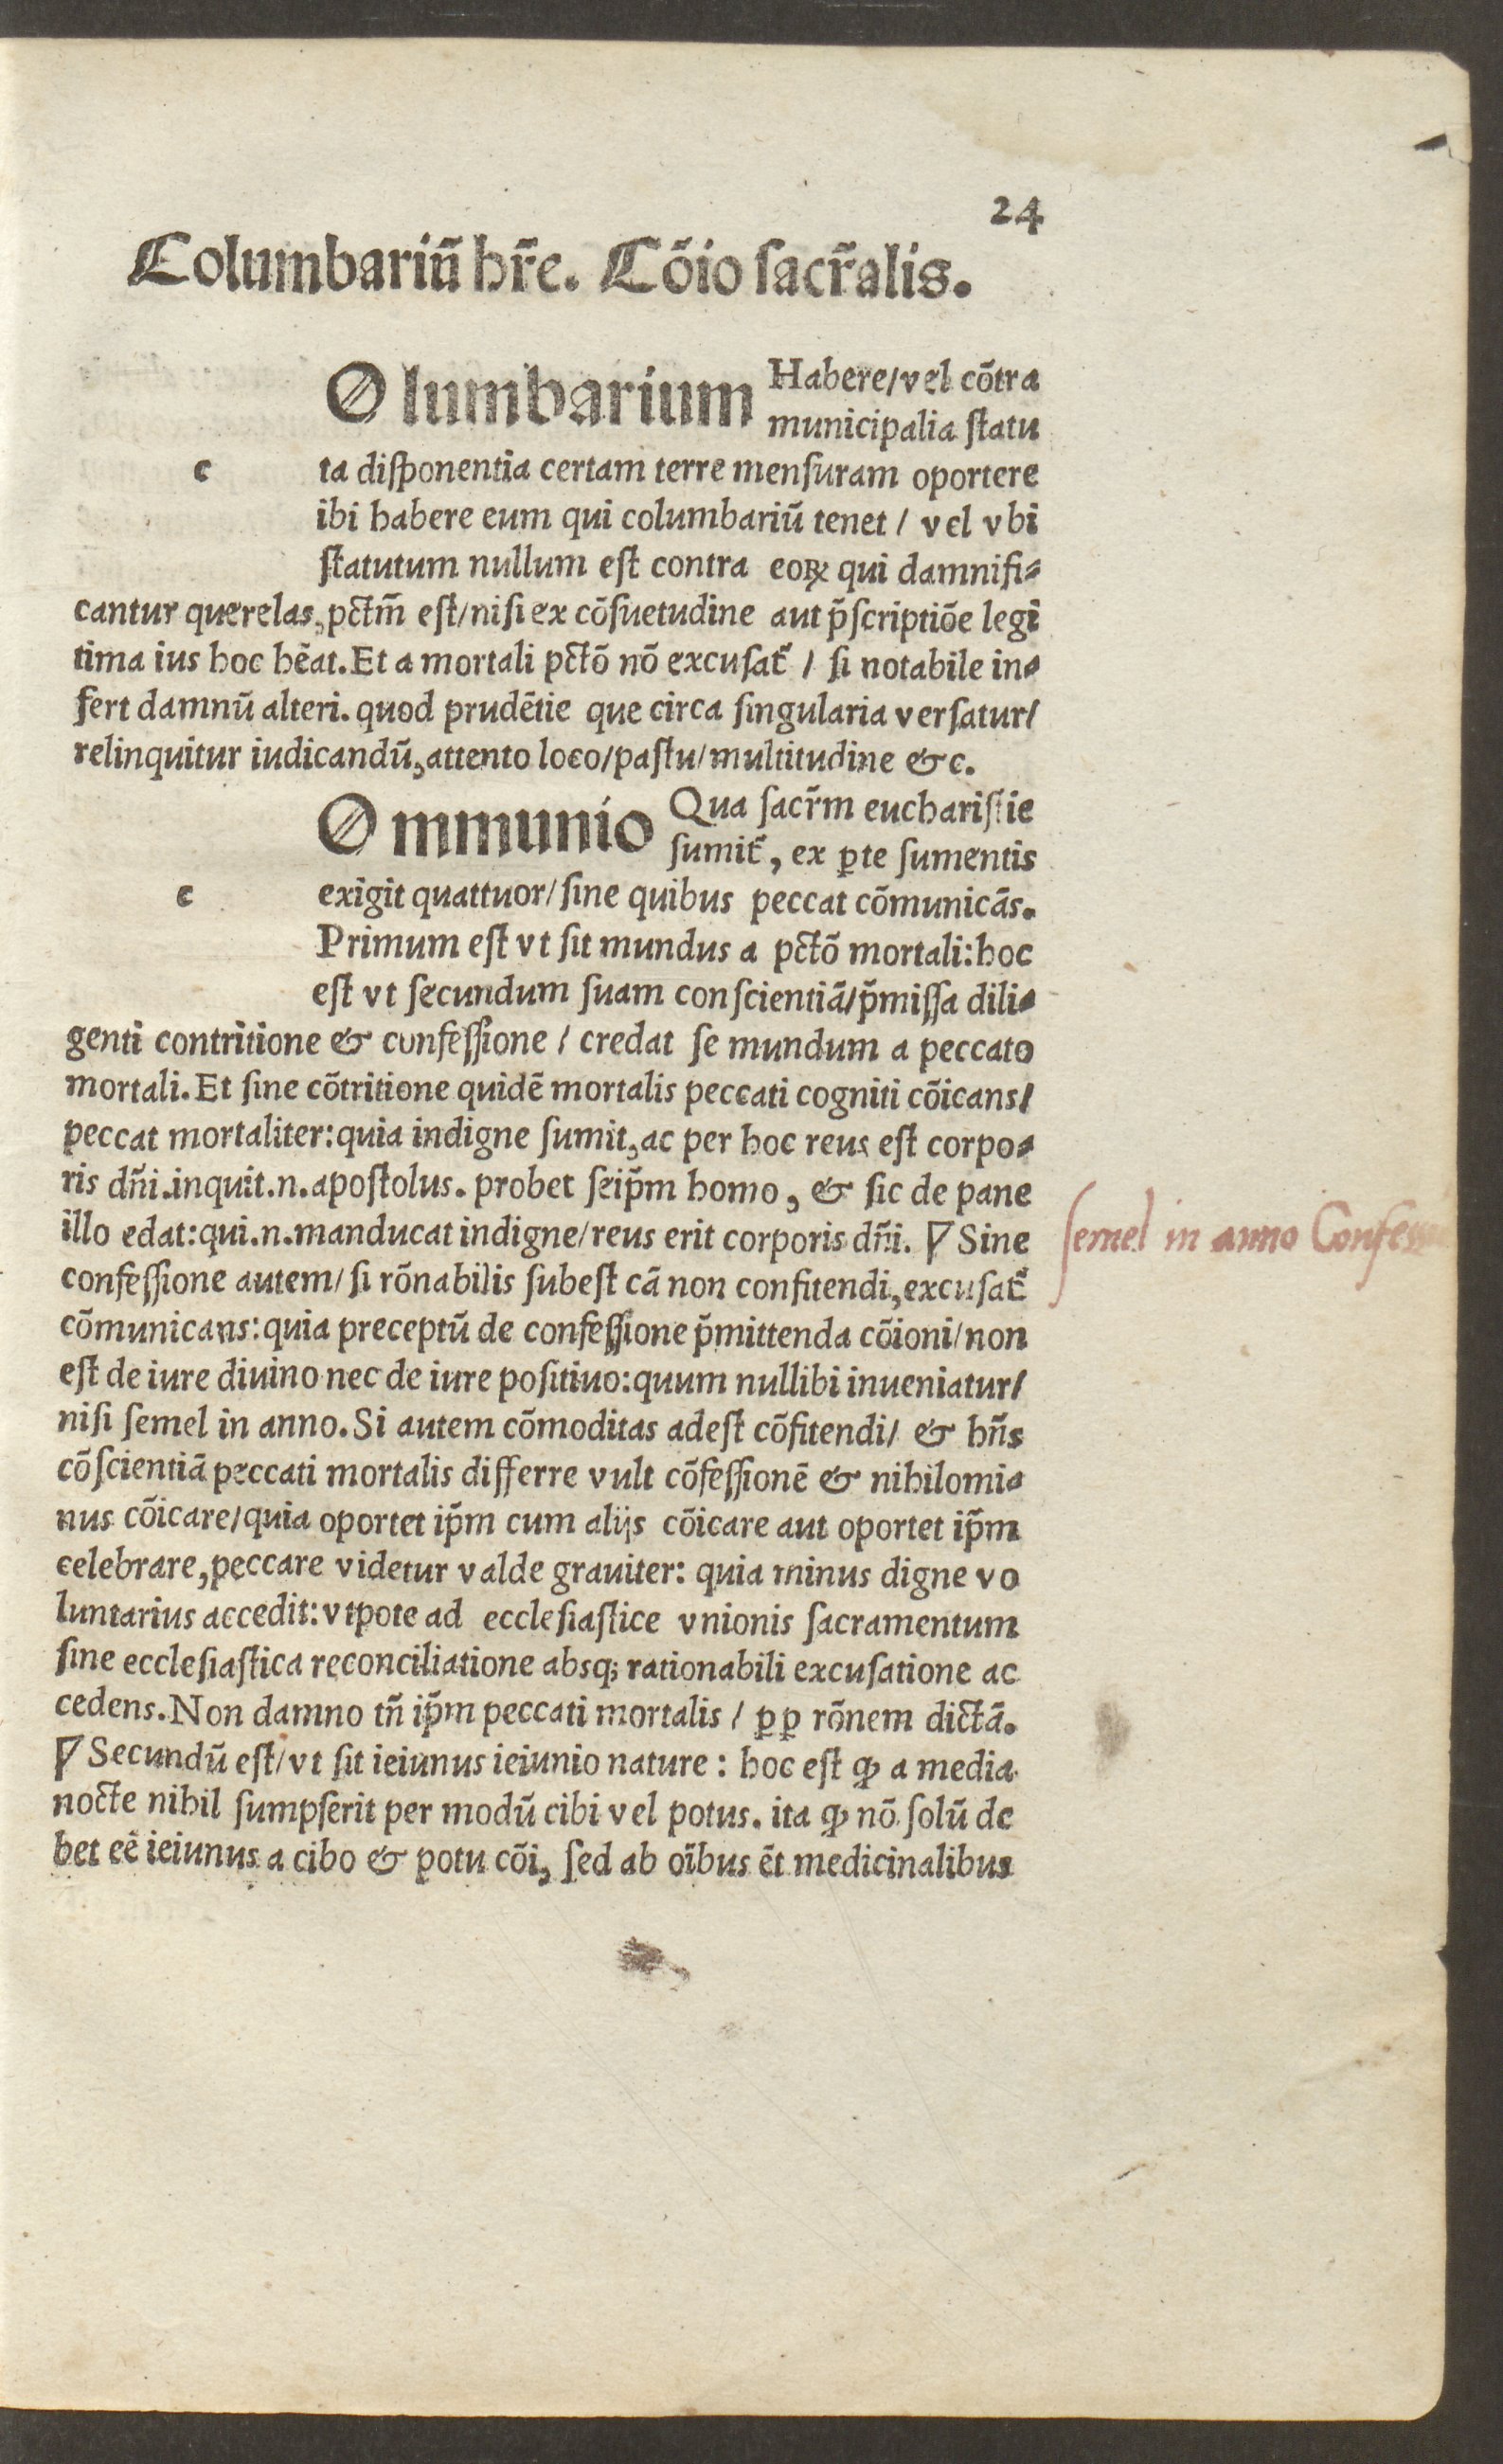 24
Columbariū hr̄e. Cōio sacr̄alis.
Olumbarium Habere/vel cōtra
municipalia ſtatu
c ta diſponentia certam terre menſuram oportere
ibi habere eum qui columbariū tenet / vel vbi
ſtatutum nullum eſt contra eoꝝ qui damnifi-
cantur querelas, pctm̄ eſt/niſi ex cōſuetudine aut p̄ſcriptiōe legi
tima ius hoc hēat. Et a mortali pctō nō excuſat̄ / ſi notabile in-
fert damnū alteri. quod prudētie que circa ſingularia verſatur/
relinquitur iudicandū, attento loco/paſtu/multitudine &c.
Ommunio Qua ſacr̄m euchariſtie
ſumit̄, ex ꝑte ſumentis
c exigit quattuor/ſine quibus peccat cōmunicās.
Primum eſt vt ſit mundus a pctō mortali: hoc
eſt vt ſecundum ſuam conſcientiā/p̄miſſa dili-
genti contritione & confeſſione / credat ſe mundum a peccato
mortali. Et ſine cōtritione quidē mortalis peccati cogniti cōicans/
peccat mortaliter: quia indigne ſumit, ac per hoc reus eſt corpo-
ris dn̄i. inquit .n. apoſtolus. probet ſeip̄m homo, & ſic de pane
illo edat: qui .n. manducat indigne/reus erit corporis dn̄i. ¶ Sine
confeſſione autem/ ſi rōnabilis ſubeſt cā non confitendi, excuſat̄
cōmunicans: quia preceptū de confeſſione p̄mittenda cōioni/non
eſt de iure diuino nec de iure poſitiuo: quum nullibi inueniatur/
niſi ſemel in anno. Si autem cōmoditas adeſt cōfitendi/ & hn̄s
cōſcientiā peccati mortalis differre vult cōfeſſionē & nihilomi-
nus cōicare/quia oportet ip̄m cum alijs cōicare aut oportet ip̄m
celebrare, peccare videtur valde grauiter: quia minus digne vo
luntarius accedit: vtpote ad eccleſiaſtice vnionis ſacramentum
ſine eccleſiaſtica reconciliatione absq; rationabili excuſatione ac
cedens. Non damno tn̄ ip̄m peccati mortalis / ꝑꝑ rōnem dictā.
¶ Secundū eſt/vt ſit ieiunus ieiunio nature : hoc eſt ꝙ a media
nocte nihil ſumpſerit per modū cibi vel potus. ita ꝙ nō ſolū de
bet eē ieiunus a cibo & potu cōi, ſed ab oībus ēt medicinalibus
ſemel in anno